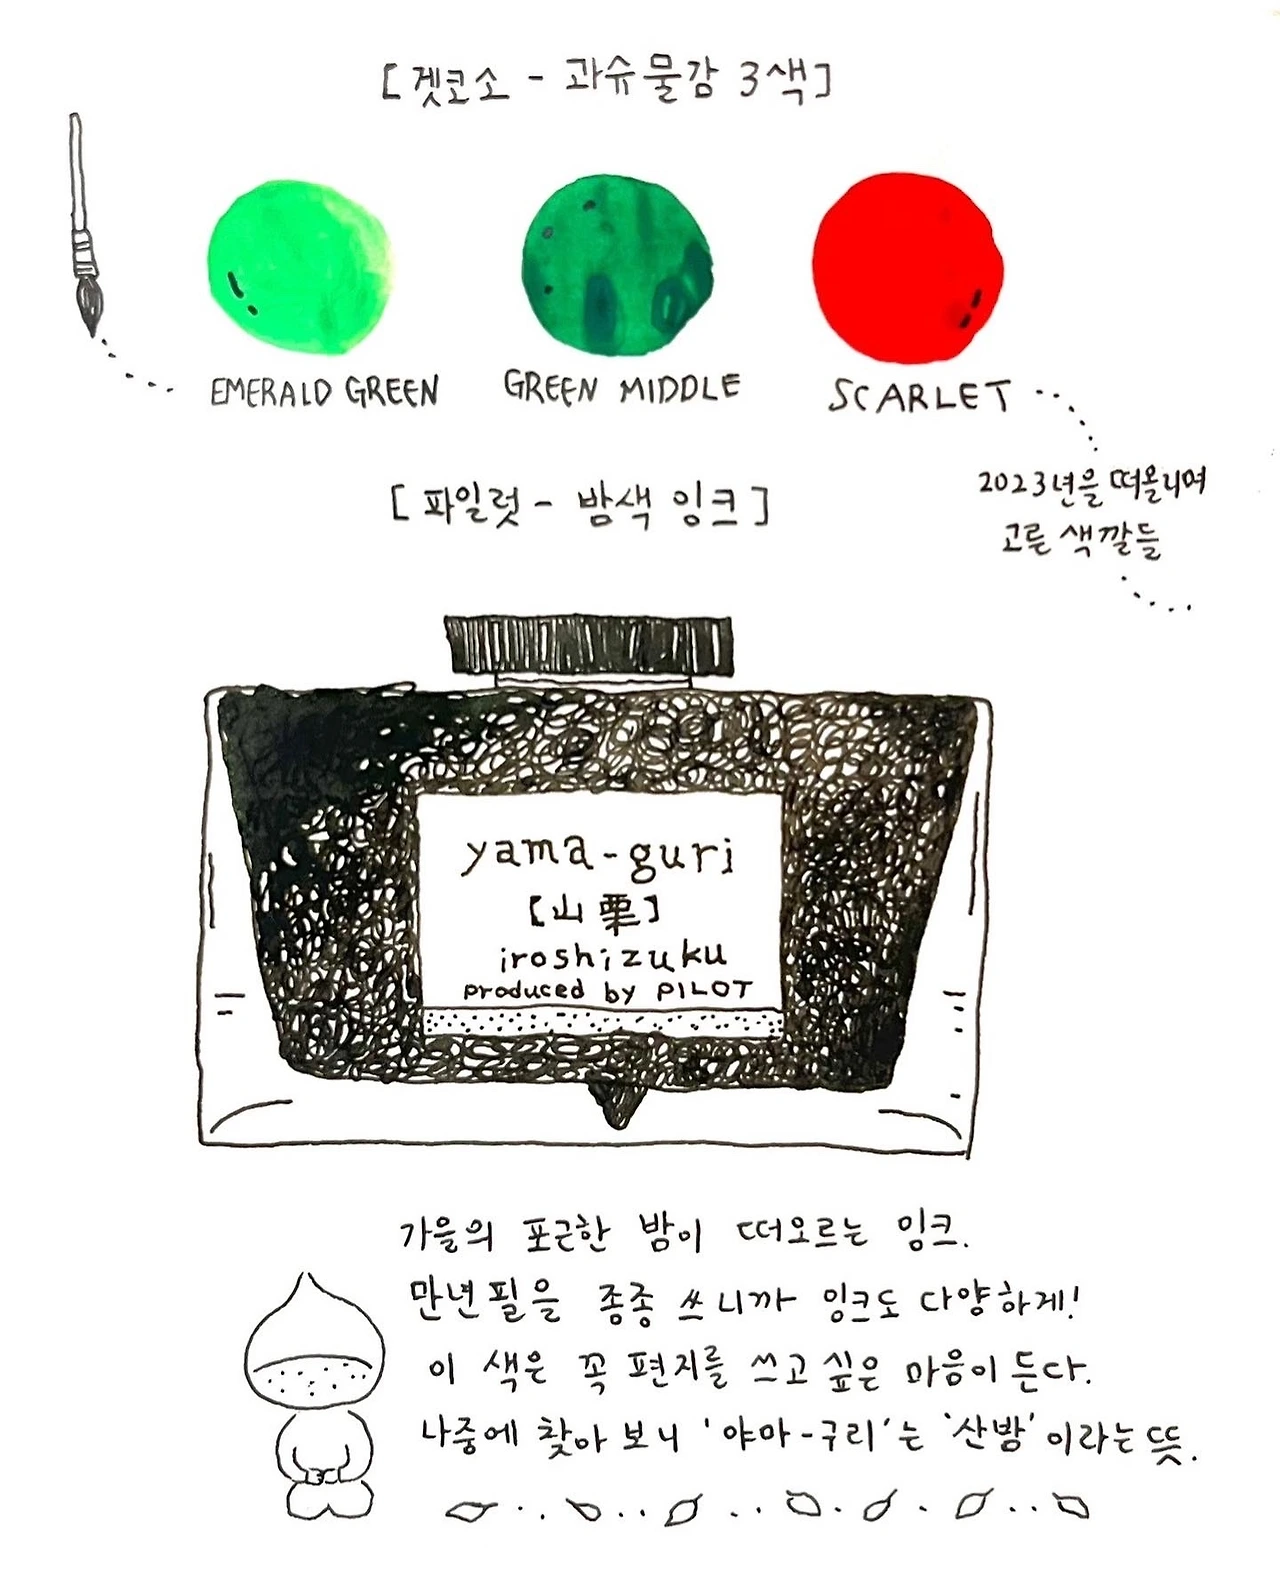 [겟코소 - 과슈물감 3색]
EMERALD GREEN
GREEN MIDDLE
SCARLET
2023년을 떠올리며
고른 색깔들
[파일럿 - 밤색 잉크]
yama-guri
[山栗]
iroshizuku
produced by PILOT
가을의 포근한 밤이 떠오르는 잉크.
만년필을 종종 쓰니까 잉크도 다양하게!
이 색은 꼭 편지를 쓰고 싶은 마음이 든다.
나중에 찾아보니 '야마-구리'는 '산밤'이라는 뜻.